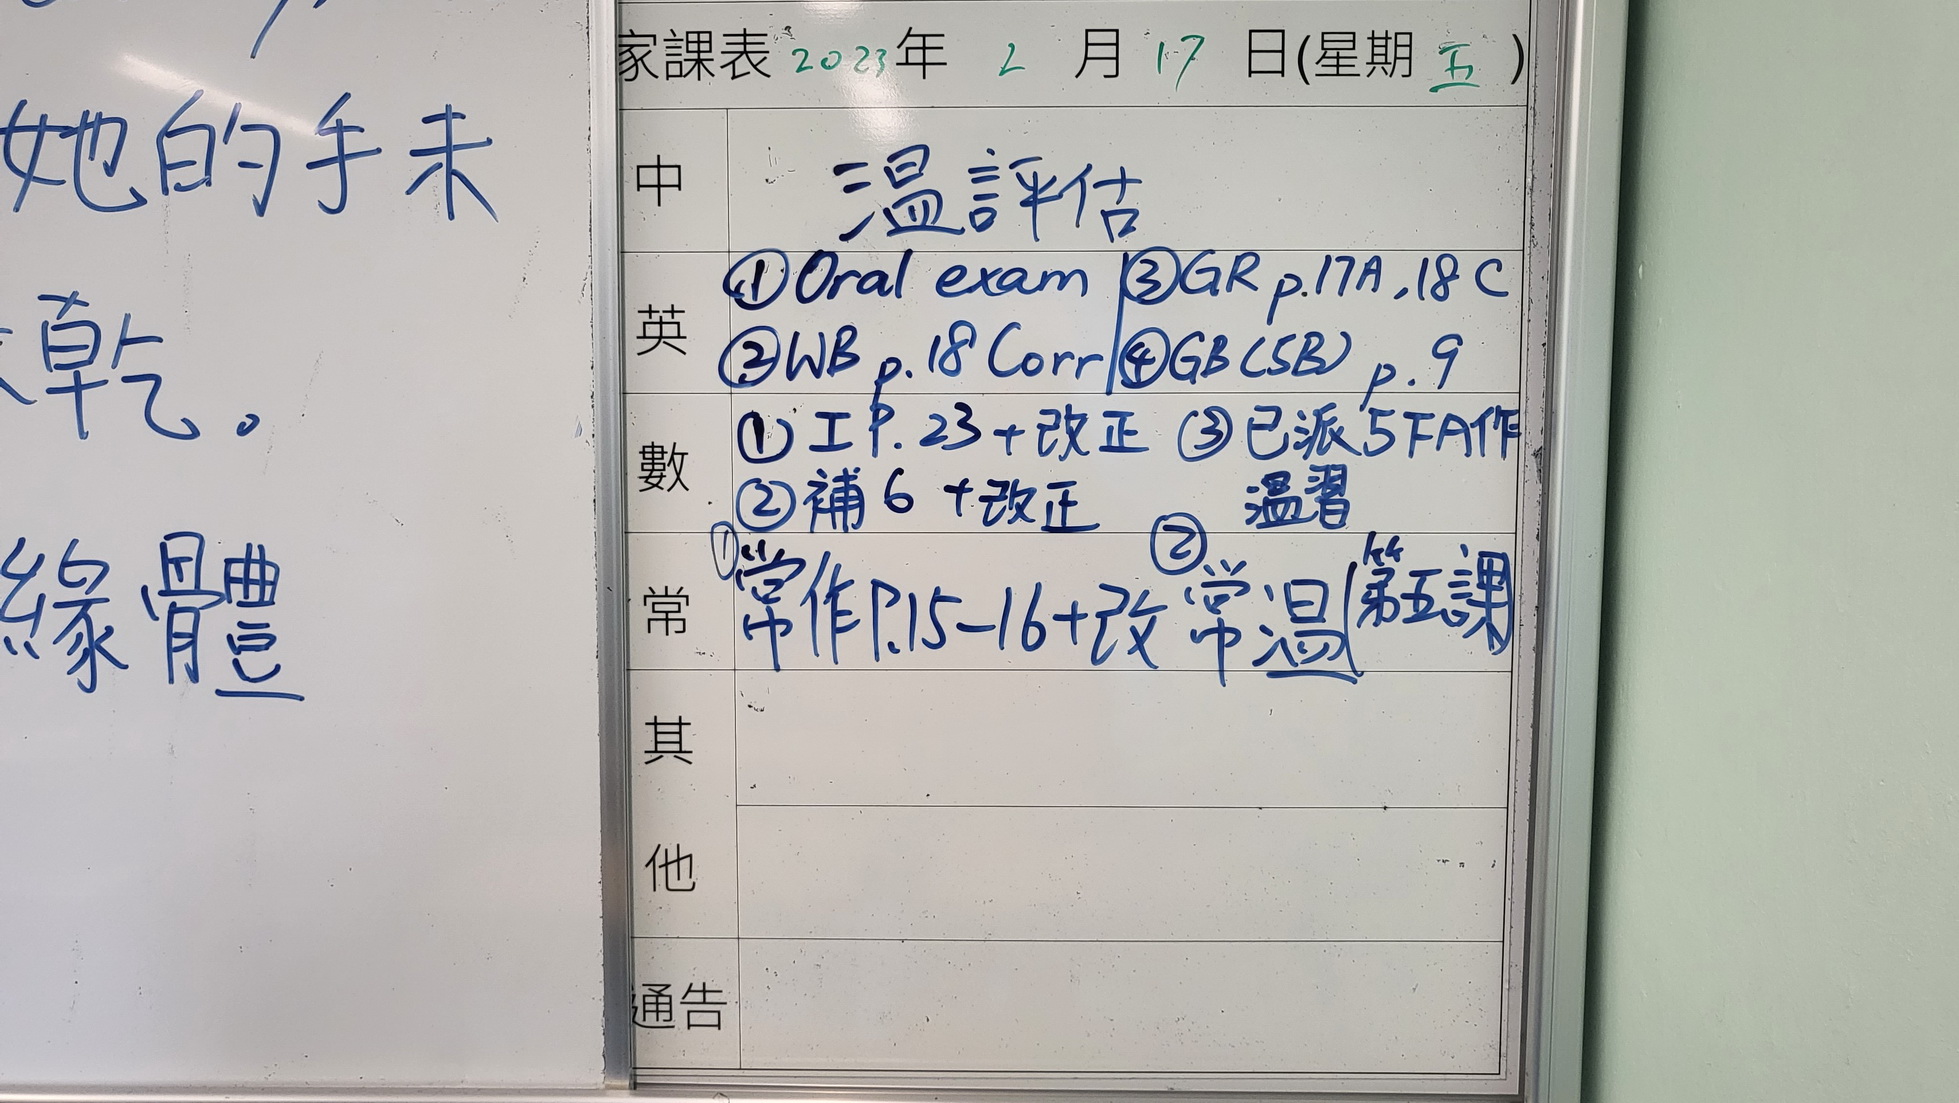 她的手未
乾。
緣體
家課表 2023年 2 月 17 日(星期 五 )
中 温評估
英 ①Oral exam ③GR p.17A,18C
②WB p.18 Corr ④GB(5B) p.9
數 ①工P.23+改正 ③已派5FA作
②補6+改正 温習
常 ①常作P.15-16+改 ②常温(第五課
其
他
通告